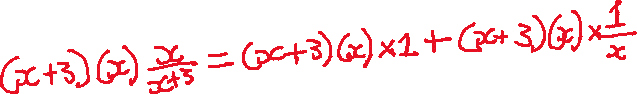 (x+3)(x) x/x+3 = (x+3)(x)×1+(x+3)(x)×1/x